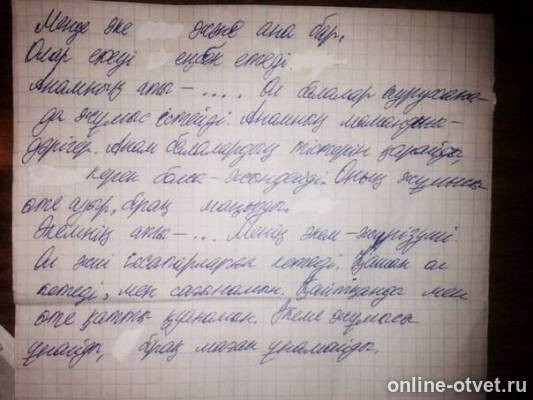 Менде әке және ана бар.
Олар екеуі еңбек етеді.
Анамның аты – .... Ол балалар аурухана-
да жұмыс істейді. Анамның мамандығы –
дәрігер. Анам балалардың тістерін қарайды,
керек болса – жөндейді. Оның жұмысы
өте ауыр, бірақ маңызды.
Әкемнің аты – ... Менің әкем – жүргізуші
Ол жиі іссапарларға кетеді. Қашан ол
кетеді, мен сағынамын. Қайтқанда мен
өте қатты қуанамын. Әкеме жұмысы
ұнайды, бірақ маған ұнамайды.
online-otvet.ru